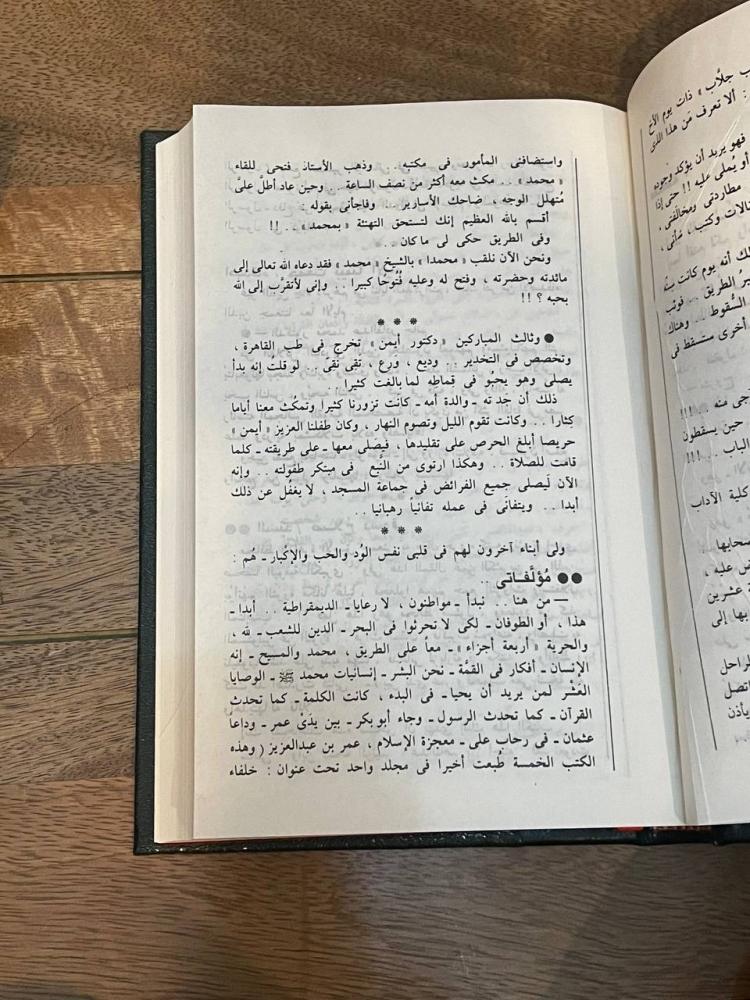 واستضافنى المأمور فى مكتبه . وذهب الأستاذ فتحى للقاء
« محمد » . . مكث معه أكثر من نصف الساعة . . وحين عاد أطلَّ علىَّ
مُتهلل الوجه ، ضاحك الأسارير . وفاجأنى بقوله :
أقسم بالله العظيم إنك لتستحق التهنئة « بمحمد » . . !!
وفى الطريق حكى لى ما كان . .
ونحن الآن نلقب « محمدا » بالشيخ « محمد » فقد دعاه الله تعالى إلى
مائدته وحضرته ، وفتح له وعليه فُتُوحًا كبيرا . . وإنى لأتقرَّب إلى الله
بحبه ؟ !!
* * *
● وثالث المباركين « دكتور أيمن » تخرج فى طب القاهرة ،
وتخصص فى التخدير . . وديع ، ورع ، تقى نقى . . لو قلتُ إنه بدأ
يصلى وهو يحبُو فى قماطِه لما بالغت كثيرا . .
ذلك أن جَدته ـ والدة أمه ـ كانت تزورنا كثيرا وتمكُث معنا أياما
كِثارا . . وكانت تقوم الليل وتصوم النهار ، وكان طفلنا العزيز « أيمن »
حريصا أبلغ الحرص على تقليدها ، فيصلى معها ـ على طريقته ـ كلما
قامت للصلاة . . وهكذا ارتوى من النَّبع فى مبتكر طفولته . . وإنه
الآن لَيصلى جميع الفرائض فى جماعة المسجد ، لا يغفُل عن ذلك
أبدا . . ويتفانَى فى عمله تفانياً رهبانيا . .
* * *
ولى أبناء آخرون لهم فى قلبى نفس الوُد والحب والإكبار ـ هم :
●● مُؤلَّفاتى . .
— من هنا . . نبدأ ـ مواطنون ، لا رعايا ـ الديمقراطية . . أبدا ـ
هذا ، أو الطوفان ـ لكى لا تحرثوا فى البحر ـ الدين للشعب ـ لله ،
والحرية « أربعة أجزاء » ـ معاً على الطريق ، محمد والمسيح ـ إنه
الإنسان ـ أفكار فى القمَّة ـ نحن البشر ـ إنسانيات محمد ﷺ ـ الوصايا
العَشْر لمن يريد أن يحيا ـ فى البدء ، كانت الكلمة ـ كما تحدث
القرآن ـ كما تحدث الرسول ـ وجاء أبو بكر ـ بين يدَىْ عمر ـ وداعاً
عثمان ـ فى رحاب على ـ معجزة الإسلام ، عمر بن عبدالعزيز ( وهذه
الكتب الخمسة طُبعت أخيرا فى مجلد واحد تحت عنوان : خلفاء
جلَّاب » ذات يوم الأخ
: ألا تعرف مَن هذا الذى
فهو يريد أن يؤكد وجوده
أو يُملى عليه !! حتى إذا
مطاردتى ومخالفتى ،
وكتب ، شأنى ،
أنه يوم كانت
الطريق . . فوثب
السُّقوط . . وهناك
أخرى ستسقط فى
منه . . !!!
حين يسقطون
الباب . . !!!
كلية الآداب
عليه ،
عشرين
بها إلى
اتصل